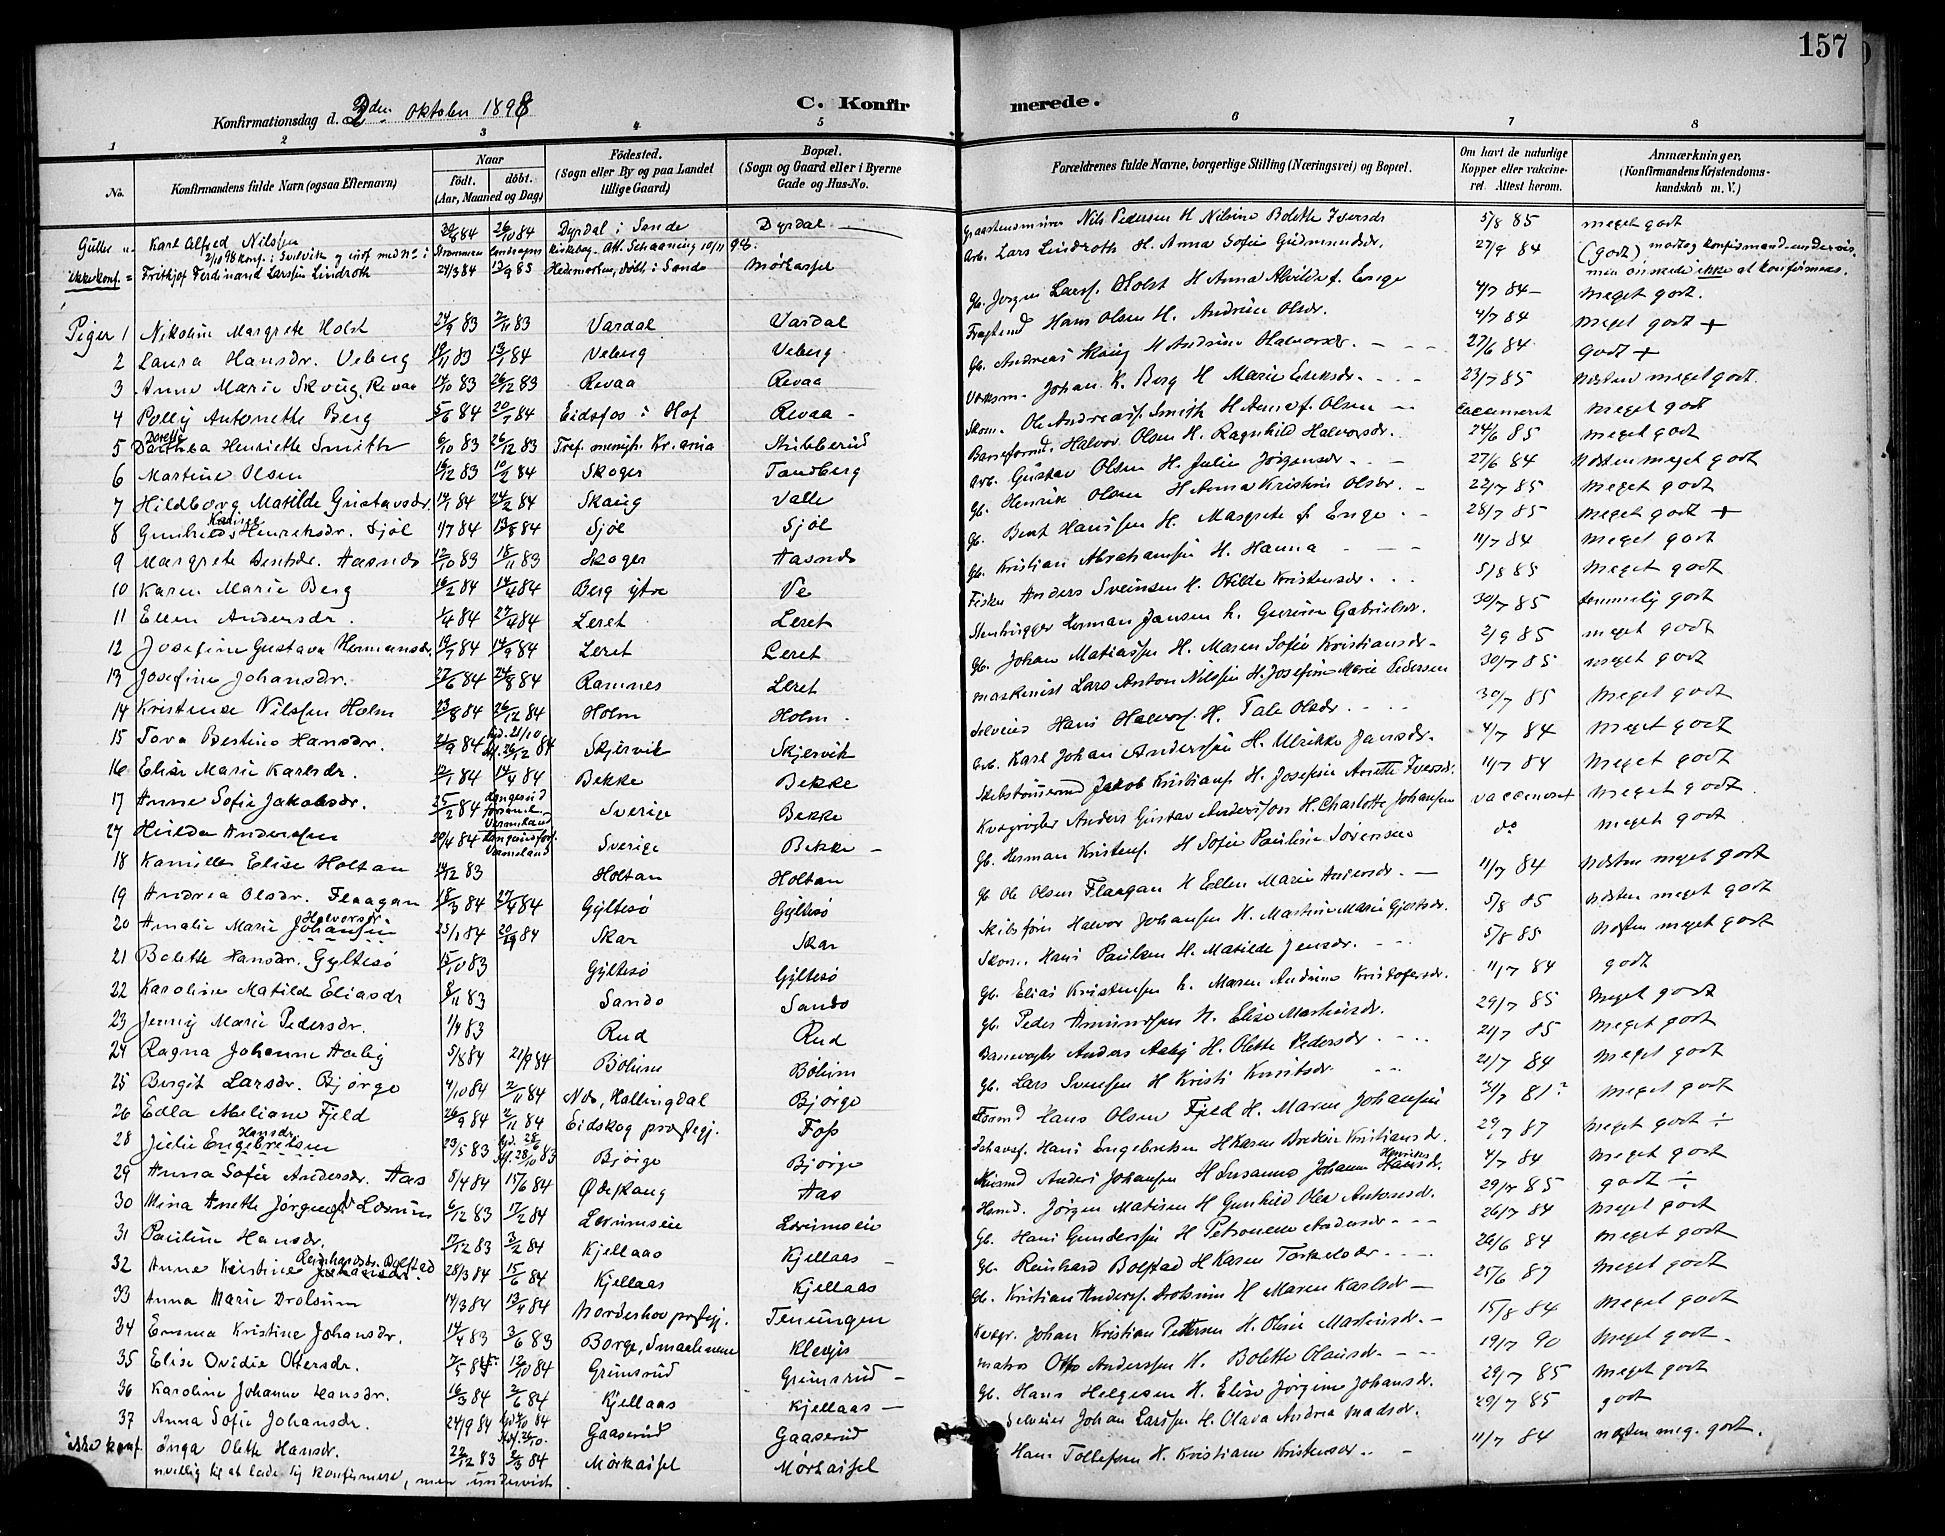 157
C. Konfirmerede.
Konfirmationsdag d. 2den Oktober 1898
1 2 3 4 5 6 7 8
No. Konfirmandens fulde Navn (ogsaa Efternavn) Naar födt. döbt. (Aar, Maaned og Dag) Födested. (Sogn eller By og paa Landet tillige Gaard) Bopæl. (Sogn og Gaard eller i Byerne Gade og Hus-No. Forældrenes fulde Navne, borgerlige Stilling (Næringsvei) og Bopæl. Om havt de naturlige Kopper eller vaccineret. Attest herom. Anmærkninger, (Konfirmandens Kristendomskundskab m. V.)
Karl Alfred Nilssen 26/10 84 Dyrdal i Sande Dyrdal Nils Pedersen H. Nilsine Bolette Iversdr 5/8 85 meget godt
ikke konf. = Fritkjof Ferdinand Larssen Lindroth 24/3 84 13/9 85 Hedemarken, döbt i Sande Mörkassel Arb. Lars Lindroth H. Anna Sofie Gudmundsdr. 27/9 84 (godt) modtog konfirmand-undervis. men önskede ikke at konfirmeres.
Piger 1 Nikoline Margrete Holst 24/9 83 2/11 83 Vardal Vardal Gb. Jörgen Larss. Holst H. Anna Alvilde f. Enge 4/7 84 meget godt.
2 Laura Hansdr. Veberg 19/11 83 13/1 84 Veberg Veberg Hans Olsen H. Andrine Olsdr. 4/7 84 Meget godt +
3 Anne Marie Skoug, Revaa 14/10 83 26/12 83 Revaa Revaa Gb. Andreas Skoug H. Andrine Halvorsdr. 27/6 84 Godt +
4 Polly Antonette Berg 5/6 84 20/7 84 Eidsfos i Hof Revaa Johan K. Berg H. Marie Eriksdr. 23/7 85 Næsten meget godt.
5 Dorthea Henriette Smith 6/10 83 26/12 83 Tref. menigh. Kr.ania Askberud Skom. Ole Andreas Smith H. Anne f. Olsen vaccineret Meget godt
6 Martine Olsen 16/12 83 10/2 84 Skoger Tandberg Halvor Olsen H. Ragnhild Halvorsdr. 24/6 85 meget godt
7 Hildborg Matilde Gustavsdr. 14/1 84 24/2 84 Skaug Valle Arb. Gustav Olsen H. Julie Jörgensdr. 27/6 84 Næsten meget godt
8 Gunhild Karine Henriksdr. Sjöl 1/7 84 13/8 84 Sjöl Sjöl Gb. Henrik Olsen H. Anna Kristine Olsdr. 22/7 85 meget godt
9 Margrete Bentsdr. Aasnes 12/10 83 18/11 83 Skoger Aasnes Gb. Bent Hanssen H. Margrete f. Enge 28/7 85 Meget godt +
10 Karen Marie Berg 16/2 84 14/4 84 Berg ytre Ve Gb. Kristian Abrahamsen H. Hanna 11/7 84 meget godt
11 Ellen Andersdr. 1/4 84 27/4 84 Leret Leret Fisker Anders Sveinsen H. Otilde Kristensdr. 5/8 85 meget godt
12 Josefine Gustava Hermansdr. 19/7 84 14/9 84 Leret Leret Stenhugger Herman Jansen h. Gurine Gabrielsdr. 30/7 85 temmelig godt
13 Josefine Johansdr. 27/6 84 24/8 84 Ramnes Leret Gb. Johan Matiassen H. Maren Sofie Kristiansdr 2/9 85 meget godt
14 Kristense Nilssen Holm 23/8 84 26/12 84 Holm Holm maskinist Lars Anton Nilssen H. Josefine Marie Pedersen 30/7 85 meget godt
15 Tora Bestine Hansdr. 21/9 84 26/12 84 Skjervik Skjervik Selveier Hans Halvors. H. Tale Olsdr 30/7 85 Meget godt
16 Elise Marie Karlsdr. 12/1 84 14/4 84 Bekke Bekke Arb. Karl Johan Anderssen H. Ulrikke Jansdr. 4/7 84 Meget godt
17 Anne Sofie Jakobsdr. 25/2 84 Sverige Bekke Jakob Kristians. H. Josefine Anette Iversdr. 11/7 84 Meget godt
27 Hulda Anderssen 30/4 84 Sverige Bekke Kvægrögter Anders Gustav Andersson H. Charlotte Johansen vaccineret Meget godt
18 Kamilla Elise Holtan 14/12 83 Holtan Holtan Gb. Herman Kristens. H. Sofie Pauline Sörensen do meget godt
19 Andrea Olsdr. Flaagan 18/3 84 27/4 84 Gyltesö Gyltesö Gb. Ole Olsen Flaagan H. Ellen Marie Andersdr. 11/7 84 Næsten meget godt
20 Amalie Marie Halvorsdr. Johansen 25/1 84 20/4 84 Skar Skar Skibsförer Halvor Johansen H. Martine Marie Gjertsdr. 5/8 85 næsten meget godt
21 Bolette Hansdr. Gyltesö 15/10 83 Gyltesö Gyltesö Skom. Hans Paulsen H. Matilde Jensdr. 5/8 85 næsten meget godt
22 Karoline Matilde Eliasdr 8/11 83 Sando Sando Gb. Elias Kristensen h. Maren Andrine Kristofersdr. 11/7 84 godt
23 Jenny Marie Pedersdr. 1/4 83 Rud Rud Gb. Peder Amundsen H. Elise Martinsdr. 29/7 85 Meget godt
24 Ragna Johanne Aaby 5/8 84 21/9 84 Böhim Böhim Banevogter Anders Aaby H. Olette Pedersdr 21/7 85 Meget godt
25 Bergit Larsdr. Bjørge 4/10 84 2/11 84 Næs, Hallingdal Bjørge Gb. Lars Svensen H. Kristi Knutsdr 21/7 84 Meget godt
26 Edla Abeliane Fjeld 26/9 84 2/11 84 Eidskog præstegj. Foss Hans Olsen Fjeld H. Maren Johansen 31/7 81? meget godt
28 Julie Hansdr Engebretsen 23/5 83 28/10 83 Bjørge Bjørge Hans Engebretsen H. Karen Bredine Kristiansdr. 29/7 87 meget godt ÷
29 Anna Sofie Andersdr. Aas 5/4 84 15/6 84 Ødeskaug Aas Anders Johansen H. Susanne Johanne Hansdr. 4/7 84 Meget godt
30 Mina Anette Jörgensdr Lorum 6/12 83 17/2 84 Lerumseie Lorumseie Jörgen Matisen H. Gunhild Olea Antonsdr. 29/7 85 godt ÷
31 Pauline Hansdr. 17/12 83 3/2 84 Kjellaas Kjellaas Gb. Hans Gunderssen H. Petronelle Andersdr 26/7 84 Meget godt
32 Anne Kristine Reinhardsdr. Bolstad 28/3 84 15/6 84 Kjellaas Kjellaas Gb. Reinhard Bolstad H. Karen Torkelsdr. 26/6 84 Meget godt
33 Anna Marie Drolsum 14/3 84 13/4 84 Norderhov præstegj. Tenungen Gb. Kristian Anderss. Drolsum H. Maren Karlsdr 25/6 87 Meget godt
34 Emma Kristine Johansdr. 14/4 83 3/6 83 Borge, Smaalenene Klevjis Johan Kristian Pettersen H. Oline Martinsdr. 15/8 84 Meget godt
35 Elise Ovidie Ottersdr. 12/10 84 Grimsrud Grimsrud matros Otto Anderssen H. Bolette Olausdr. 19/7 90 Meget godt.
36 Karoline Johanne Hansdr. 16/3 84 2/6 84 Kjellaas Kjellaas Gb. Hans Helgesen H. Elise Jörgine Johansdr. 29/7 85 Meget godt
37 Anna Sofie Johansdr. 24/9 84 26/10 84 Gaaserud Gaaserud Selveier Johan Larssen H. Olava Andrea Madsdr. 29/7 85 godt
ikke konf. Inga Olette Hansdr. 22/12 83 2/3 84 Mörkassel Mörkassel Hans Tollefsen H. Kristiane Kristensdr 11/7 84 næsten meg. godt.
uvillig til at lade sig konfirmere, men undervist.